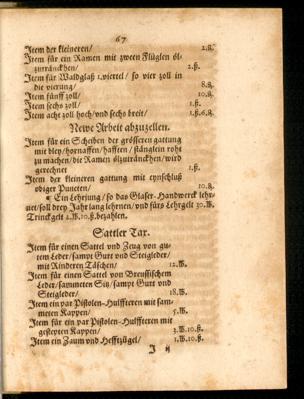 67
Item der kleineren/ 2.ß.
Item für ein Ramen mit zween Flüglen öl-
zuträncken/ 2.ß.
Item für Waldglaß 1.viertel/ so vier zoll in
die vierung/ 8.ß.
Item fünff zoll/ 10.ß.
Item sechs zoll/ 1.ß.
Item acht zoll hoch/ und sechs breit/ 1.ß.6.ß.
Newe Arbeit abzuzellen.
Item für ein Scheiben der grösseren gattung
mit bley/ hornaffen/ hafften/ stänglein roht
zu machen/ die Ramen ölzuträncken/ wird
gerechnet 1.ß.
Item der kleineren gattung mit eynschluß
obiger Puncten/ 10.ß.
¶ Ein Lehrjung/ so das Glaser-Handwerck lehr-
net/ soll drey Jahr lang lehrnen/ und fürs Lehrgelt 30.W.
Trinckgelt 2.W.10.ß.bezahlen.
Sattler Tax.
Item für einen Sattel und Zeug von gu-
tem Leder/ sampt Gurt und Steigleder/
mit Rinderen Täschen/ 12.W.
Item für einen Sattel von Preussischem
Leder/ sammeten Sitz/ sampt Gurt und
Steigleder/ 18.W.
Item für ein par Pistolen-Hulffteren mit sam-
meten Kappen/ 5.W.
Item für ein par Pistolen-Hulffteren mit
gestepten Kappen/ 3.W.10.ß.
Item ein Zaum und Hefftzügel/ 1.W.10.ß.
J ij